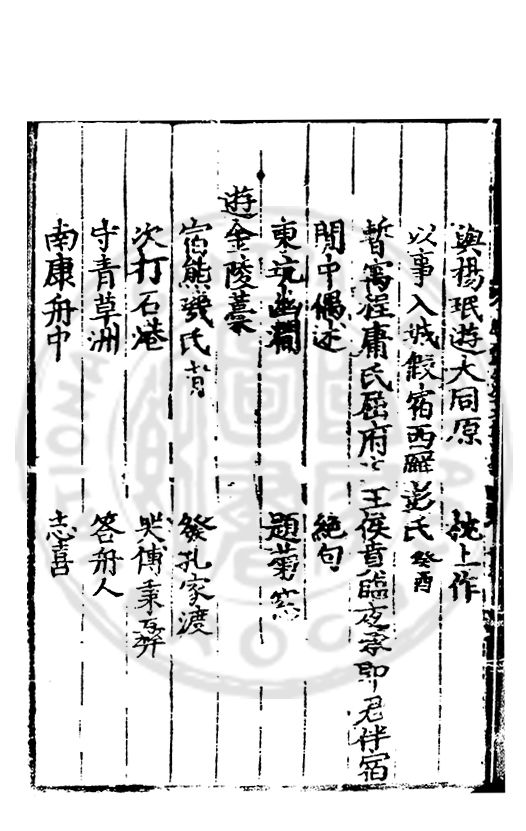 與楊珉遊大同原　枕上作
以事入城假宿西羅彭氏癸酉
暫寓程庸氏屈府　王侯賁臨夜承即君伴宿
閒中偶述　絕句
東坑幽澗　題菊窓
遊金陵藁
宿熊璣氏
次打石港　發孔家渡
守青草洲　答舟人
南康舟中　志喜